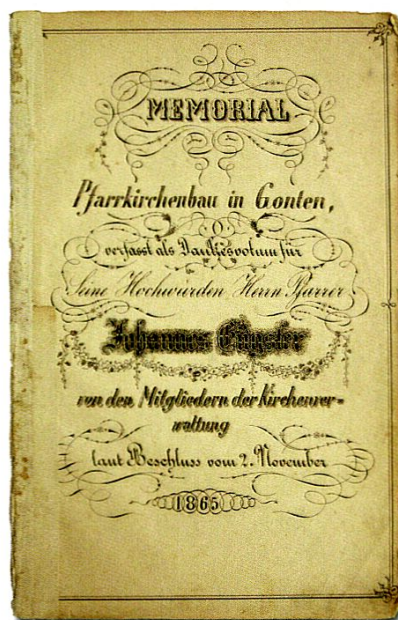 MEMORIAL
Pfarrkirchenbau in Gonten,
verfasst als Dankesvotum für
Seine Hochwürden Herrn Pfarrer
Johannes
von den Mitgliedern der Kirchenver-
waltung
laut Beschluss vom 2. November
1865